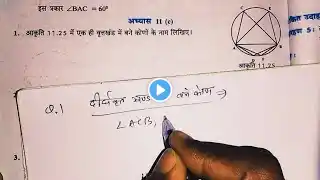 इस प्रकार ∠BAC = 60°
अध्याय 11 (c)
1. आकृति 11.25 में एक ही वृत्तखंड में बने कोणों के नाम लिखिए।
आकृति 11.25
Q.1 दीर्घवृत्त खण्ड बने कोण ⇒
∠ACB,
3.